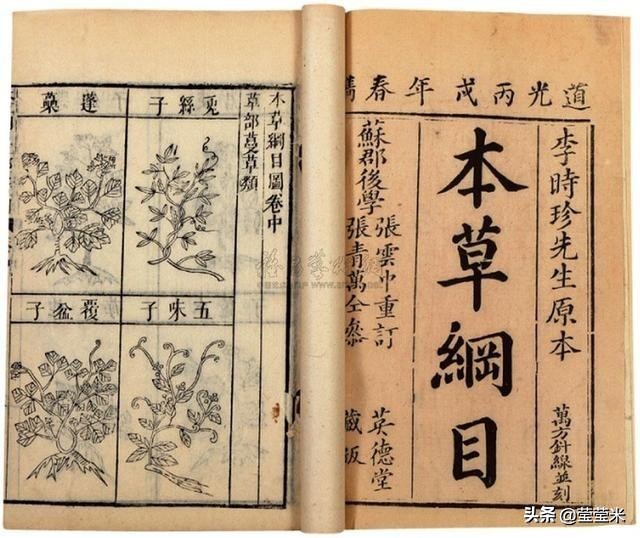 道光丙戌年春鐫
李時珍先生原本
萬方針線並刻
本草綱目
蘇郡後學
張雲中重訂
張青萬仝參
英德堂
藏版
本草綱目圖卷中
草部蔓草類
兎絲子
蓬虆
五味子
覆盆子
头条 @莹莹米